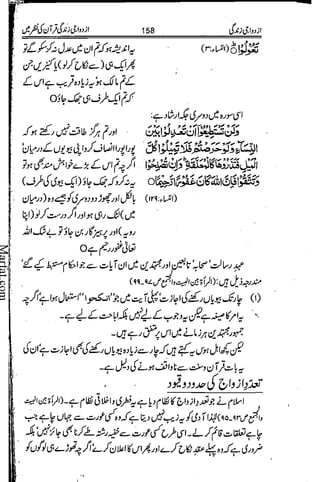 ازدواجی زندگی 158 ازدواجی زندگی قرآن کی نظر میں
تَعُولُوا (النساء:۳)
یہ اندیشہ ہو کہ تم ان میں عدل نہ کر سکو گے تو
پھر ایک ہی (سے نکاح کر لو) یا کنیزیں جن
کے تم مالک ہو یہ زیادہ قریب ہے اس کے
کہ تم ایک طرف ہی جھک جاؤ O
اسی سورہ میں دوسری جگہ ارشاد ہے:
وَلَنْ تَسْتَطِيعُوا أَنْ تَعْدِلُوا بَيْنَ
النِّسَاءِ وَلَوْ حَرَصْتُمْ فَلَا تَمِيلُوا كُلَّ
الْمَيْلِ فَتَذَرُوهَا كَالْمُعَلَّقَةِ وَإِنْ تُصْلِحُوا
وَتَتَّقُوا فَإِنَّ اللَّهَ كَانَ غَفُورًا رَحِيمًا O
(النساء:۱۲۹)
اور تم ہرگز طاقت نہیں رکھتے ہو کہ
پورا پورا انصاف کرو اپنی بیویوں کے درمیان
اگرچہ تم اس کے بڑے خواہش مند بھی ہو تو
یہ نہ کرو کہ جھک جاؤ (ایک بیوی کی طرف)
بالکل اور چھوڑ دو دوسری کو جیسے وہ (درمیان
میں) لٹک رہی ہو اور اگر درست کر لو (اپنا
رویہ) اور پرہیزگار بن جاؤ تو بے شک اللہ
تعالیٰ غفور رحیم ہے O
عہد رسالت، صحابہ، تابعین اور مجتہدین میں ان آیات سے جو احکام مستنبط کیے گئے
مندرجہ ذیل ہیں: (المرأۃ بین البیت والمجتمع ص ۹۷۔۹۹)
(۱) چار تک بیویاں رکھنے کی اجازت، پہلی آیت میں جو "انکحوا" استعمال ہوا ہے اگرچہ
یہ امر کا صیغہ ہے لیکن یہ وجوب کے لیے نہیں بلکہ اباحت کے لیے ہے۔
جمہور مجتہدین ہر زمانے میں اس پر متفق رہے ہیں۔
لیکن کچھ اہل ہوس یہ کہتے ہیں کہ چار سے زیادہ بیویاں رکھنے کی بھی اجازت ہے ان کی
یہ بات قرآن و سنت سے ناواقف ہونے کی دلیل ہے۔
تعددِ ازواج کی حدود و قیود
اسلام نے جو تعددِ ازواج کا نظام دیا ہے یہ فطری و اخلاقی نظام ہے۔ (المرأۃ بین البیت
والمجتمع ص ۹۳۔۹۵) لہٰذا آدمی کو یہ زیب نہیں دیتا ہے کہ وہ کسی عورت سے جہاں چاہے جب
چاہے تعلقات قائم کر لے۔ اسی طرح کسی عورت سے خفیہ رشتہ طے کرنا بھی جائز نہیں، بلکہ
ضروری ہے کہ وہ پہلے عقدِ نکاح کرے اور پھر اس کا اعلان کرے اگرچہ تھوڑے ہی لوگوں کو
Marfat.com